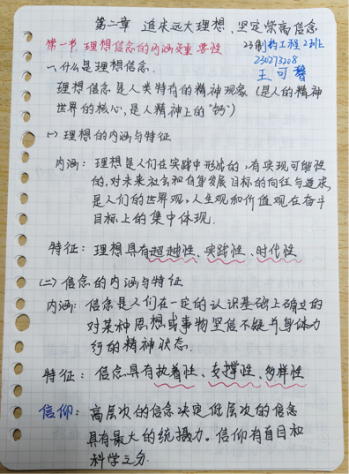 第二章 追求远大理想、坚定崇高信念
第一节 理想信念的内涵及重要性
23制药工程23班
230273208
王可馨
一、什么是理想信念.
理想信念是人类特有的精神现象（是人的精神
世界的核心,是人精神上的“钙”）
(一) 理想的内涵与特征
内涵: 理想是人们在实践中形成的,有实现可能性
的,对未来社会和自身发展目标的向往与追求,
是人们的世界观,人生观和价值观在奋斗
目标上的集中体现.
特征: 理想具有超越性、实践性、时代性
(二) 信念的内涵与特征
内涵: 信念是人们在一定的认识基础上确立的
对某种思想或事物坚信不疑并身体力
行的精神状态.
特征: 信念具有执着性、支撑性、多样性
信仰: 高层次的信念决定低层次的信念
具有最大的统摄力。信仰有盲目和
科学之分.